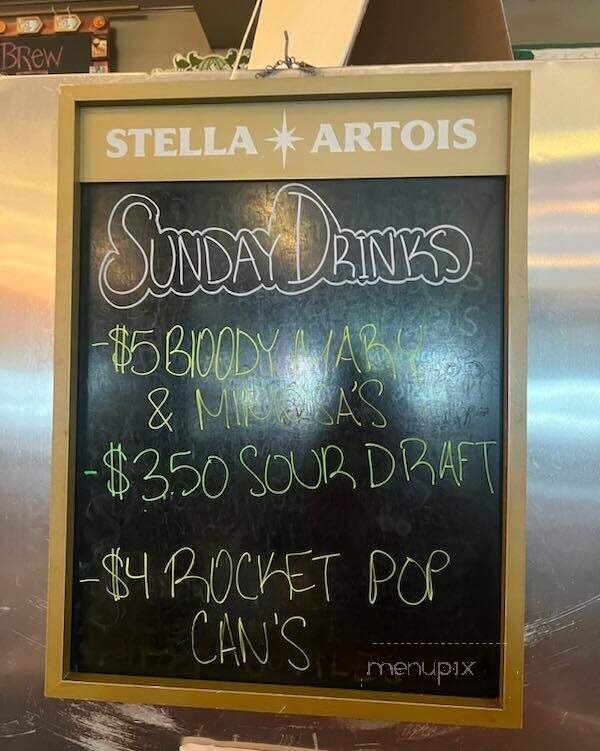 BREW
STELLA ARTOIS
SUNDAY DRINKS
-$5 BLOODY MARY
& MIMOSA'S
-$3.50 SOUR DRAFT
-$4 ROCKET POP
CAN'S
menupix